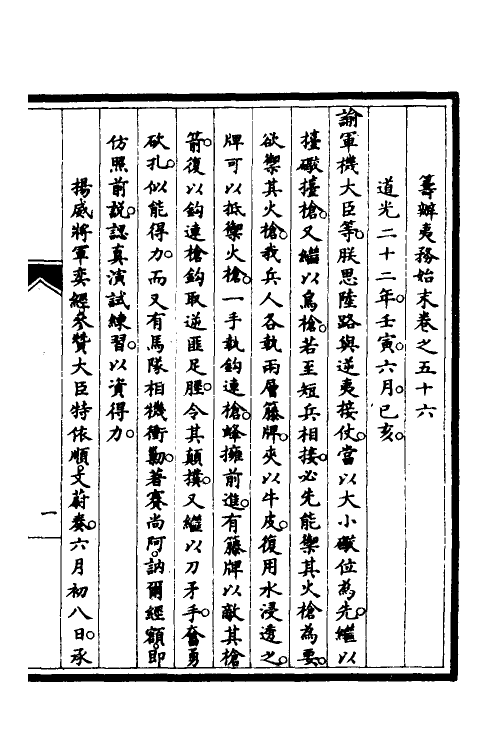 籌辦夷務始末卷之五十六
道光二十二年。壬寅。六月。己亥。
諭軍機大臣等。朕思陸路與逆夷接仗。當以大小礮位為先。繼以
擡礮擡槍。又繼以鳥槍。若至短兵相接。必先能禦其火槍為要。
欲禦其火槍。我兵人各執兩層籐牌。夾以牛皮。復用水浸透之。
牌可以抵禦火槍。一手執鉤連槍。蜂擁前進。有籐牌以敵其槍
箭。復以鉤連槍鉤取逆匪足脛。令其顛撲。又繼以刀矛手。奮勇
砍扎。似能得力。而又有馬隊相機衝勦。著賽尚阿。訥爾經額。即
仿照前說。認真演試練習。以資得力。
揚威將軍奕經。參贊大臣特依順。文蔚奏。六月初八日。承
一